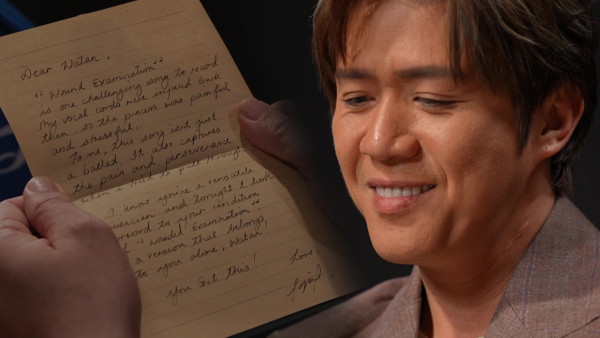 Dear Watan,
"Wound Examination"
is one challenging song to record
My vocal cords were injured back
then, so the process was painful
and stressful.
To me, this song isn't just
a ballad. It also captures
the pain and perseverance
when a
I know you're a versatile
musician and tonight I look
forward to your rendition
of "Wound Examination"
a version that belongs
to you alone, Watan.
You Got this!
Love,